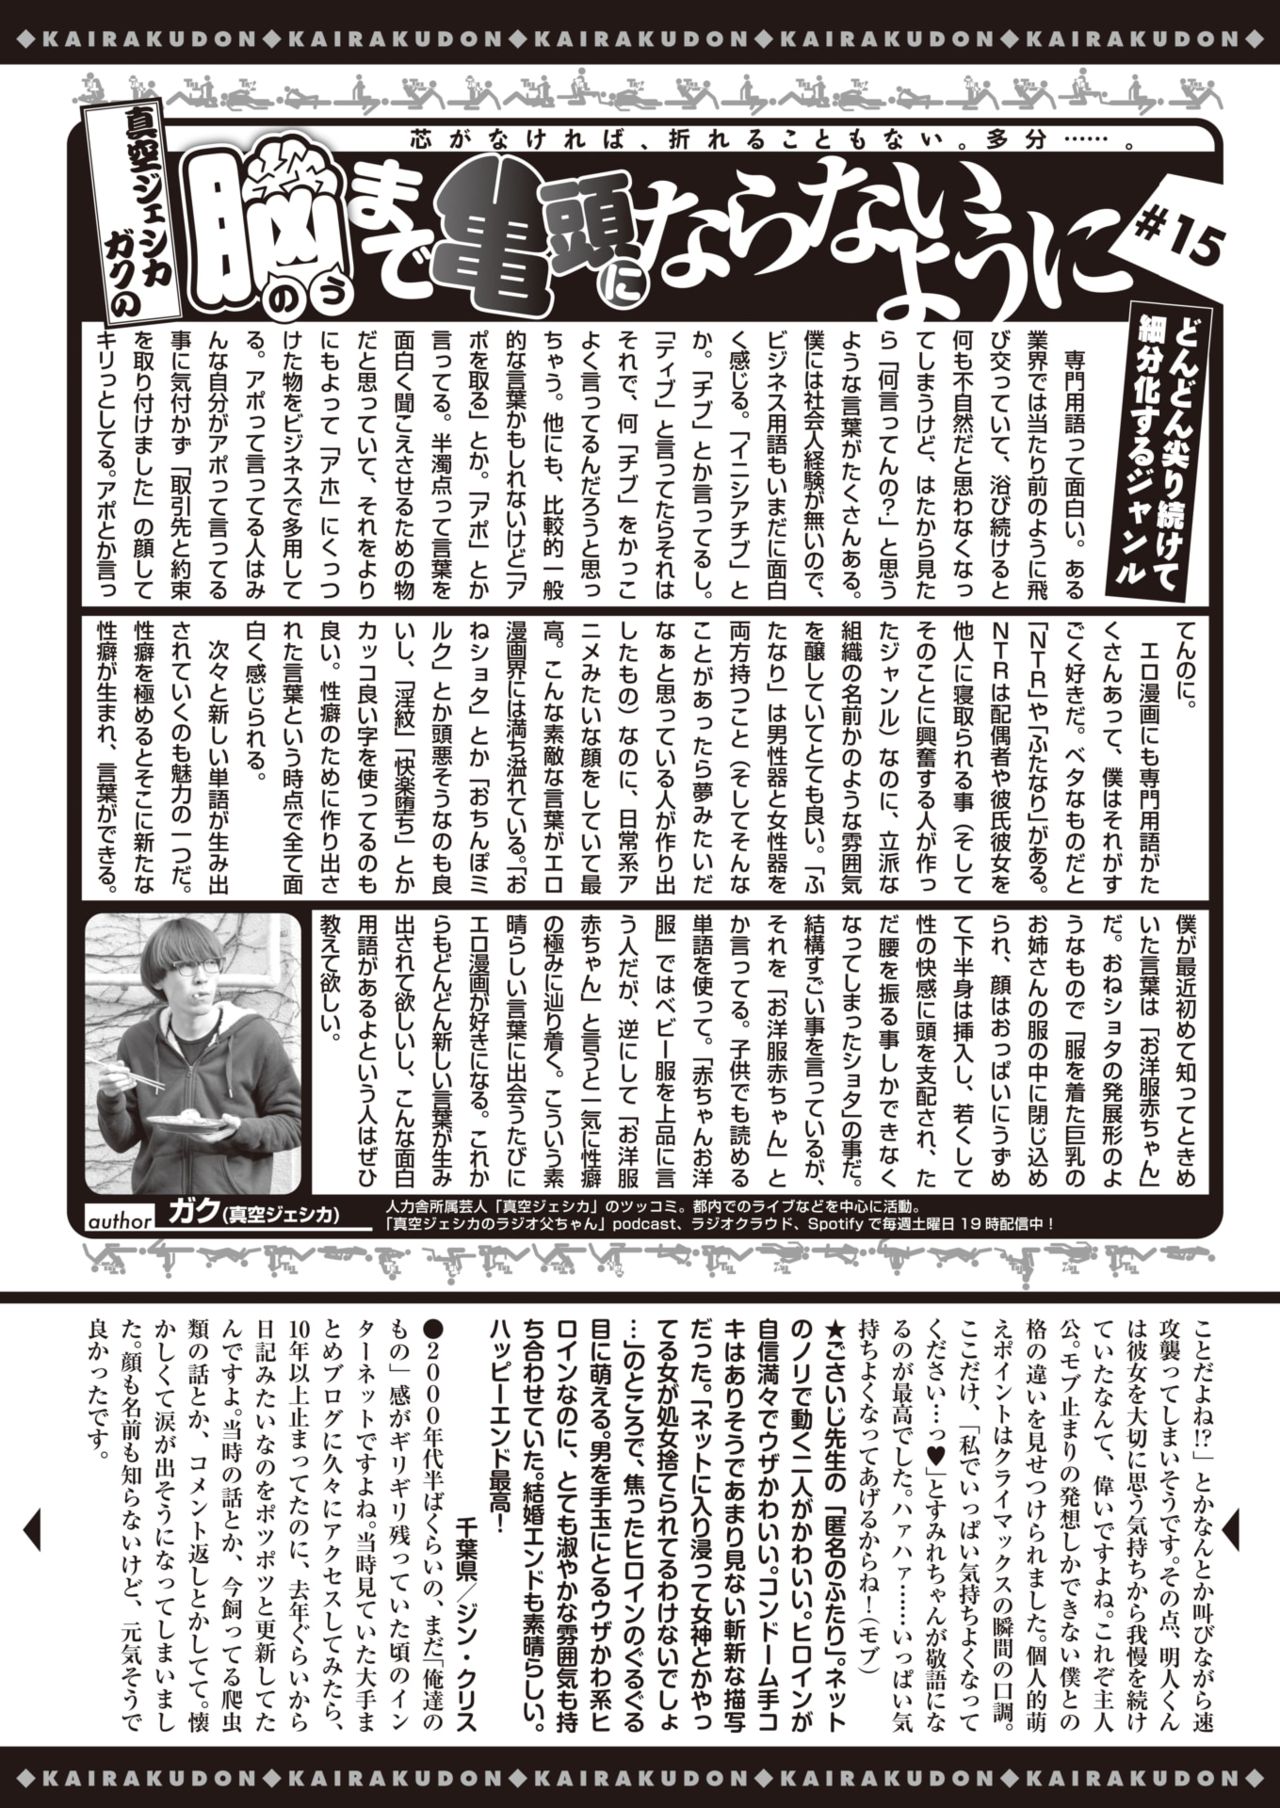 ◆KAIRAKUDON◆KAIRAKUDON◆KAIRAKUDON◆KAIRAKUDON◆KAIRAKUDON◆
芯がなければ、折れることもない。多分……。
真空ジェシカ
ガクの
脳まで亀頭にならないように
のう
#15
どんどん尖り続けて
細分化するジャンル
専門用語って面白い。ある
業界では当たり前のように飛
び交っていて、浴び続けると
何も不自然だと思わなくなっ
てしまうけど、はたから見た
ら「何言ってんの？」と思う
ような言葉がたくさんある。
僕には社会人経験が無いので、
ビジネス用語もいまだに面白
く感じる。「イニシアチブ」と
か。「チブ」とか言ってるし。
「ティブ」と言ってたらそれは
それで、何「チブ」をかっこ
よく言ってるんだろうと思っ
ちゃう。他にも、比較的一般
的な言葉かもしれないけど「ア
ポを取る」とか。「アポ」とか
言ってる。半濁点って言葉を
面白く聞こえさせるための物
だと思っていて、それをより
にもよって「アホ」にくっつ
けた物をビジネスで多用して
る。アポって言ってる人はみ
んな自分がアポって言ってる
事に気付かず「取引先と約束
を取り付けました」の顔して
キリっとしてる。アポとか言っ
てんのに。
エロ漫画にも専門用語がた
くさんあって、僕はそれがす
ごく好きだ。ベタなものだと
「NTR」や「ふたなり」がある。
NTRは配偶者や彼氏彼女を
他人に寝取られる事（そして
そのことに興奮する人が作っ
たジャンル）なのに、立派な
組織の名前かのような雰囲気
を醸していてとても良い。「ふ
たなり」は男性器と女性器を
両方持つこと（そしてそんな
ことがあったら夢みたいだ
なぁと思っている人が作り出
したもの）なのに、日常系ア
ニメみたいな顔をしていて最
高。こんな素敵な言葉がエロ
漫画界には満ち溢れている。
いし、「淫紋」「快楽堕ち」とか
カッコ良い字を使ってるのも
良い。性癖のために作り出さ
れた言葉という時点で全て面
白く感じられる。
次々と新しい単語が生み出
されていくのも魅力の一つだ。
性癖を極めるとそこに新たな
性癖が生まれ、言葉ができる。
エロ漫画が好きになる。これか
らもどんどん新しい言葉が生み
出されて欲しいし、こんな面白
用語があるよという人はぜひ
教えて欲しい。
author ガク(真空ジェシカ)
人力舎所属芸人「真空ジェシカ」のツッコミ。都内でのライブなどを中心に活動。
「真空ジェシカのラジオ父ちゃん」podcast、ラジオクラウド、Spotifyで毎週土曜日19時配信中！
ことだよね!?」とかなんとか叫びながら速
攻襲ってしまいそうです。その点、明人くん
は彼女を大切に思う気持ちから我慢を続け
ていたなんて、偉いですよね。これぞ主人
公。モブ止まりの発想しかできない僕との
格の違いを見せつけられました。個人的萌
えポイントはクライマックスの瞬間の口調。
ここだけ、「私でいっぱい気持ちよくなって
ください…っ♥」とすみれちゃんが敬語にな
るのが最高でした。ハァハァ……いっぱい気
持ちよくなってあげるからね！（モブ）
★ごさいじ先生の「匿名のふたり」。ネット
のノリで動く二人がかわいい。ヒロインが
自信満々でウザかわいい。コンドーム手コ
キはありそうであまり見ない斬新な描写
だった。「ネットに入り浸って女神とかやっ
てる女が処女捨てられてるわけないでしょ
…」のところで、焦ったヒロインのぐるぐる
目に萌える。男を手玉にとるウザかわ系ヒ
ロインなのに、とても淑やかな雰囲気も持
ち合わせていた。結婚エンドも素晴らしい。
ハッピーエンド最高！
千葉県／ジン・クリス
●2000年代半ばくらいの、まだ「俺達の
もの」感がギリギリ残っていた頃のイン
ターネットですよね。当時見ていた大手ま
とめブログに久々にアクセスしてみたら、
10年以上止まってたのに、去年ぐらいから
日記みたいなのをポツポツと更新してた
んですよ。当時の話とか、今飼ってる爬虫
類の話とか、コメント返しとかしてて。懐
かしくて涙が出そうになってしまいまし
た。顔も名前も知らないけど、元気そうで
良かったです。
◆KAIRAKUDON◆KAIRAKUDON◆KAIRAKUDON◆KAIRAKUDON◆KAIRAKUDON◆